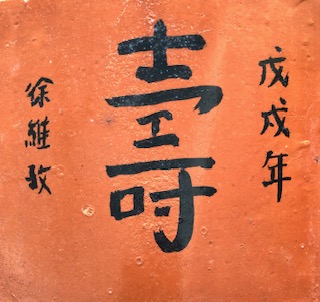 戊戌年
壽
徐維政